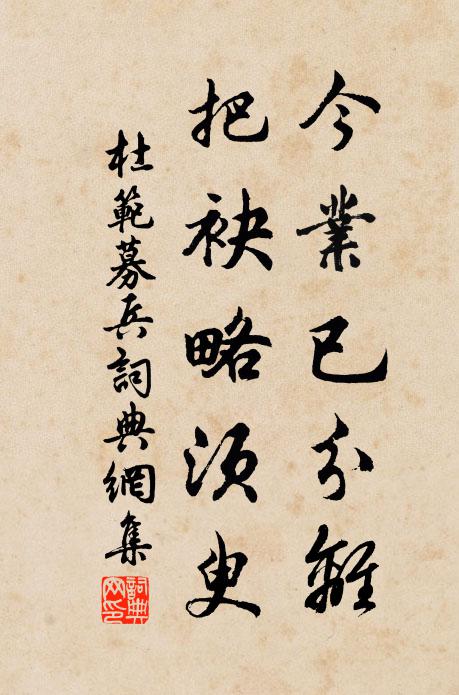 今業已分離
把袂略須臾
杜範募兵詞典網集
詞典網印